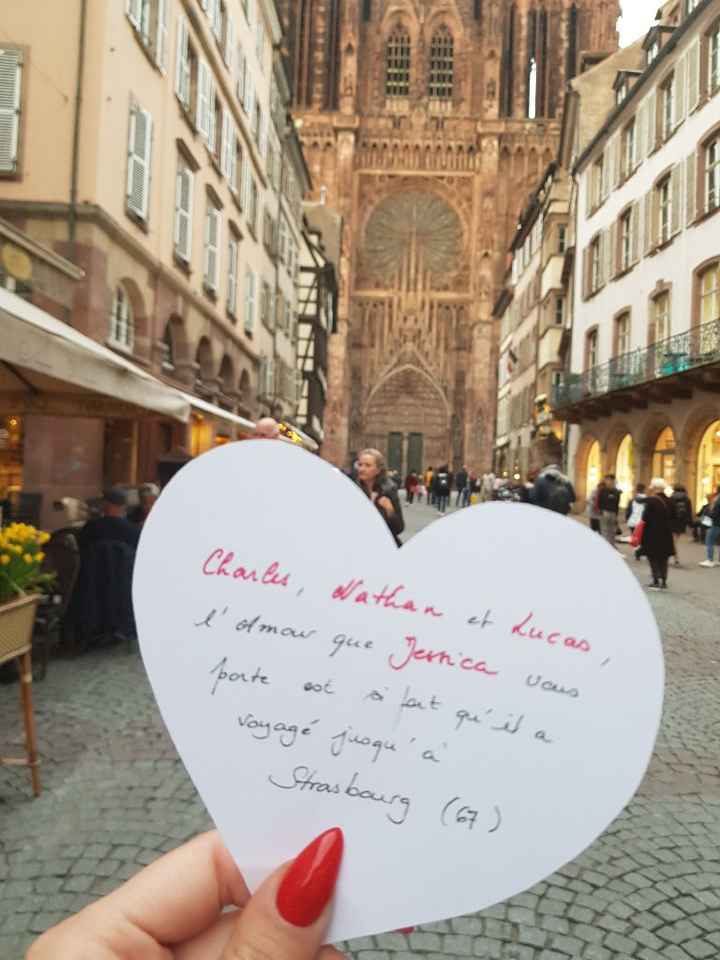 Charles, Nathan et Lucas,
l'amour que Jessica vous
porte est si fort qu'il a
voyagé jusqu'à
Strasbourg (67)